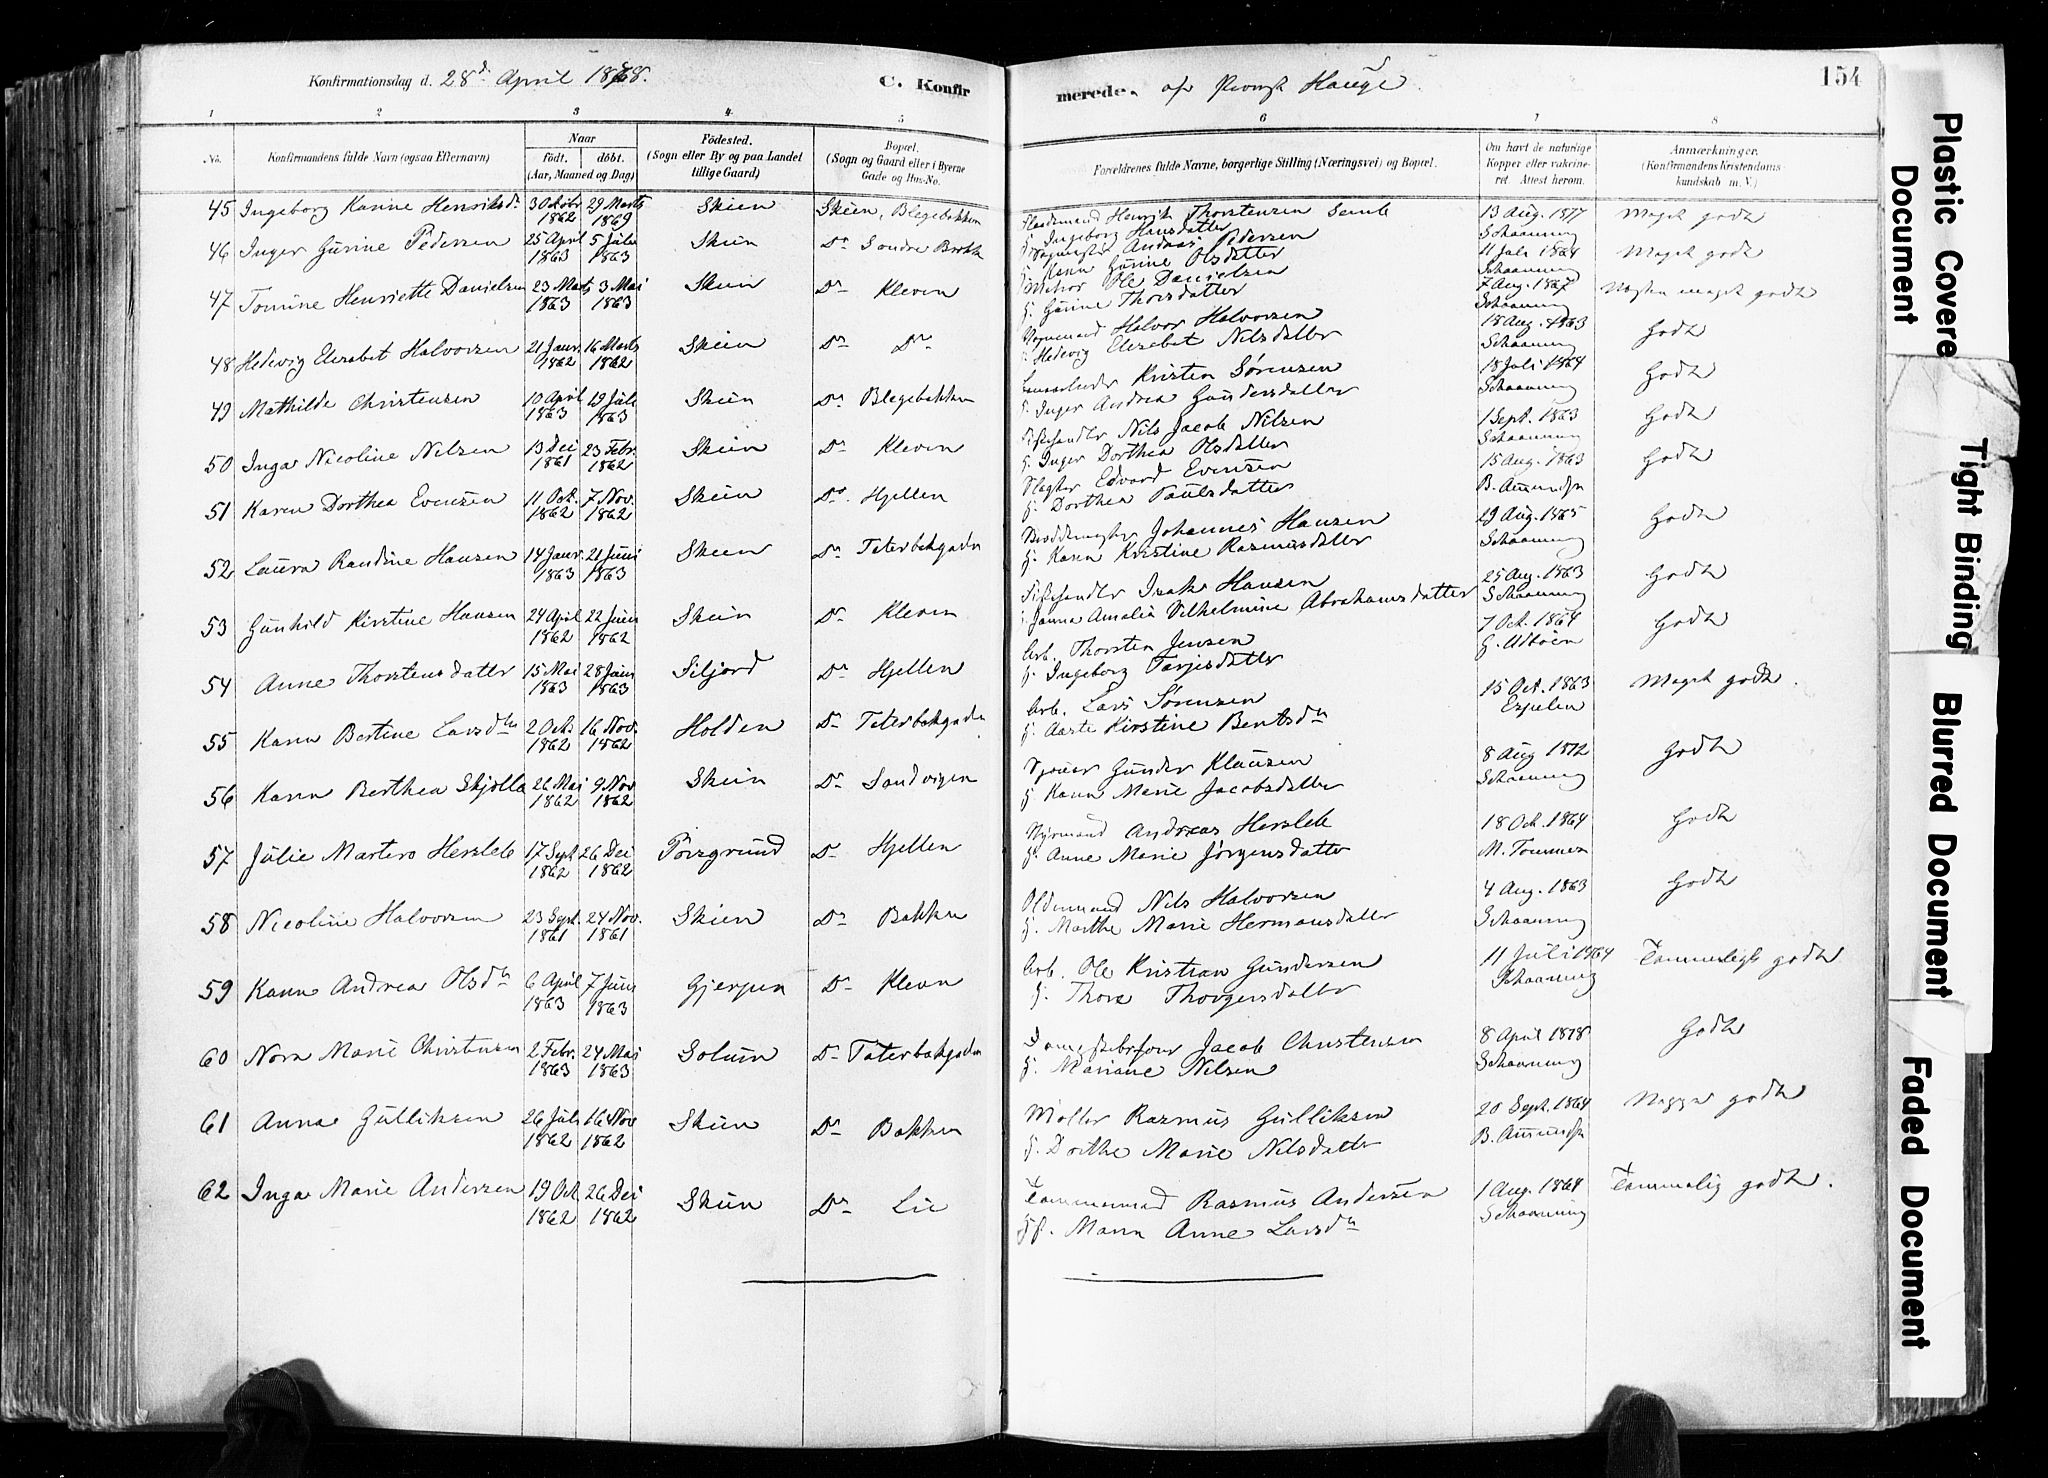 Konfirmationsdag d. 28d. April 1878.
C. Konfirmerede. af Provst Hauge.
154
1 2 3 4 5 6 7 8
No.
Konfirmandens fulde Navn (ogsaa Efternavn)
Naar
födt. döbt.
(Aar, Maaned og Dag)
Födested.
(Sogn eller By og paa Landet
tillige Gaard)
Bopæl.
(Sogn og Gaard eller i Byerne
Gade og Hus-No.
Forældrenes fulde Navne, borgerlige Stilling (Næringsvei) og Bopæl.
Om havt de naturlige
Kopper eller vakcine-
ret. Attest herom.
Anmærkninger.
(Konfirmandens Kristendoms-
kundskab m. V.)
45 Ingeborg Karine Henriksd. 3 Oktobr 1862 29 Marts 1869 Skien Skien, Blegebakken Henrik Thorstensen 13 Aug. 1877 Meget godt
Ingeborg Hansdatter Schaaning
46 Inger Gurine Pedersen 25 April 1863 5 Juli 1863 Skien Do Søndre Brekke Andreas Pedersen 11 Juli 1864 Meget godt
Karen Gurine Olsdatter Schaaning
47 Tomine Henriette Danielsen 23 Marts 1863 3 Mai 1863 Skien Do Kleven Ole Danielsen 7 Aug. 1867 Næsten meget godt
H. Gurine Thorsdatter Schaaning
48 Hedevig Elesabet Halvorsen 21 Janr. 1862 16 Marts 1862 Skien Do Do Vognmand Halvor Halvorsen 18 Aug. 1863 Godt
Hedevig Elesabet Nilsdatter Schaaning
49 Mathilde Christensen 10 April 1863 19 Juli 1863 Skien Do Blegebakken Kristen Sørensen 18 Juli 1864 Godt
H. Inger Andrea Gundersdatter Schaaning
50 Inga Nicoline Nilsen 13 Dei 1861 23 Febr. 1862 Skien Do Kleven Fiskehandler Nils Jacob Nilsen 1 Sept. 1863 Godt
H. Inger Dorthea Olsdatter Schaaning
51 Karen Dorthea Evensen 11 Oct. 1862 7 Nov. 1862 Skien Do. Hjellen Slagter Edvard Evensen 15 Aug. 1863 Godt
H. Dorthea Paulsdatter
52 Laura Randine Hansen 14 Janr. 1863 21 Juni 1863 Skien Do Taterbekgaden Johannes Hansen 29 Aug. 1865 Godt
H. Karen Kristine Rasmusdatter Schaaning
53 Gunhild Kirstine Hansen 24 April 1862 22 Juni 1862 Skien Do Kleven Fiskehandler Isak Hansen 25 Aug. 1863 Godt
Janna Amalia Vilhelmine Abrahamsdatter Schaaning
54 Anne Thorstensdatter 15 Mai 1863 28 Juni 1863 Siljord Do Hjellen Arb. Thorsten Jensen 7 Oct. 1864 Godt
H. Ingeborg Tarjesdatter
55 Karen Bertine Larsdtr 2 Octr 1862 16 Nov. 1862 Holden Do Taterbekgaden Arb. Lars Sørensen 15 Oct. 1863 Meget godt.
H. Aaste Kirstine Bentsdtr Espelen
56 Karen Berthea Skjolla 26 Mai 1862 9 Nov 1862 Skien Do Sandvigen Gunder Klausen 8 Aug 1872 Godt
H. Karen Marie Jacobsdatter Schaaning
57 Julie Martero Hersleb 17 Sept 1862 26 Dei 1862 Porsgrund Do Hjellen Styrmand Andreas Hersleb 18 Oct. 1864 Godt
H. Anne Marie Jørgensdatter
58 Nicoline Halvorsen 23 Sept. 1861 24 Nov. 1861 Skien Do Bakken Oldermand Nils Halvorsen 4 Aug. 1863 Godt
H. Marthe Marie Hermansdatter Schaaning
59 Karen Andrea Olsdtr 6 April 1863 7 Juni 1863 Gjerpen Do Kleven Arb. Ole Kristian Gundersen 11 Juli 1864 Temmeligt godt
H. Thora Thorgersdatter Schaaning
60 Nora Marie Christensen 2 Febr. 1863 24 Mai 1863 Solum Do Taterbekgaden Jacob Christensen 8 April 1878 Godt
H. Mariane Nilsen Schaaning
61 Anna Gulliksen 26 Juli 1862 16 Nov 1862 Skien Do Bakken Møller Rasmus Gulliksen 20 Sept. 1864 godt
H. Dorthe Marie Nilsdatter
62 Inga Marie Andersen 19 Oct 1862 26 Dei 1862 Skien Do Lie Tømmermand Rasmus Andersen 1 Aug. 1864 Temmelig godt.
H. Maren Anne Larsdtr Schaaning
Plastic Covere
Document
Tight Binding
Blurred Document
Faded Document